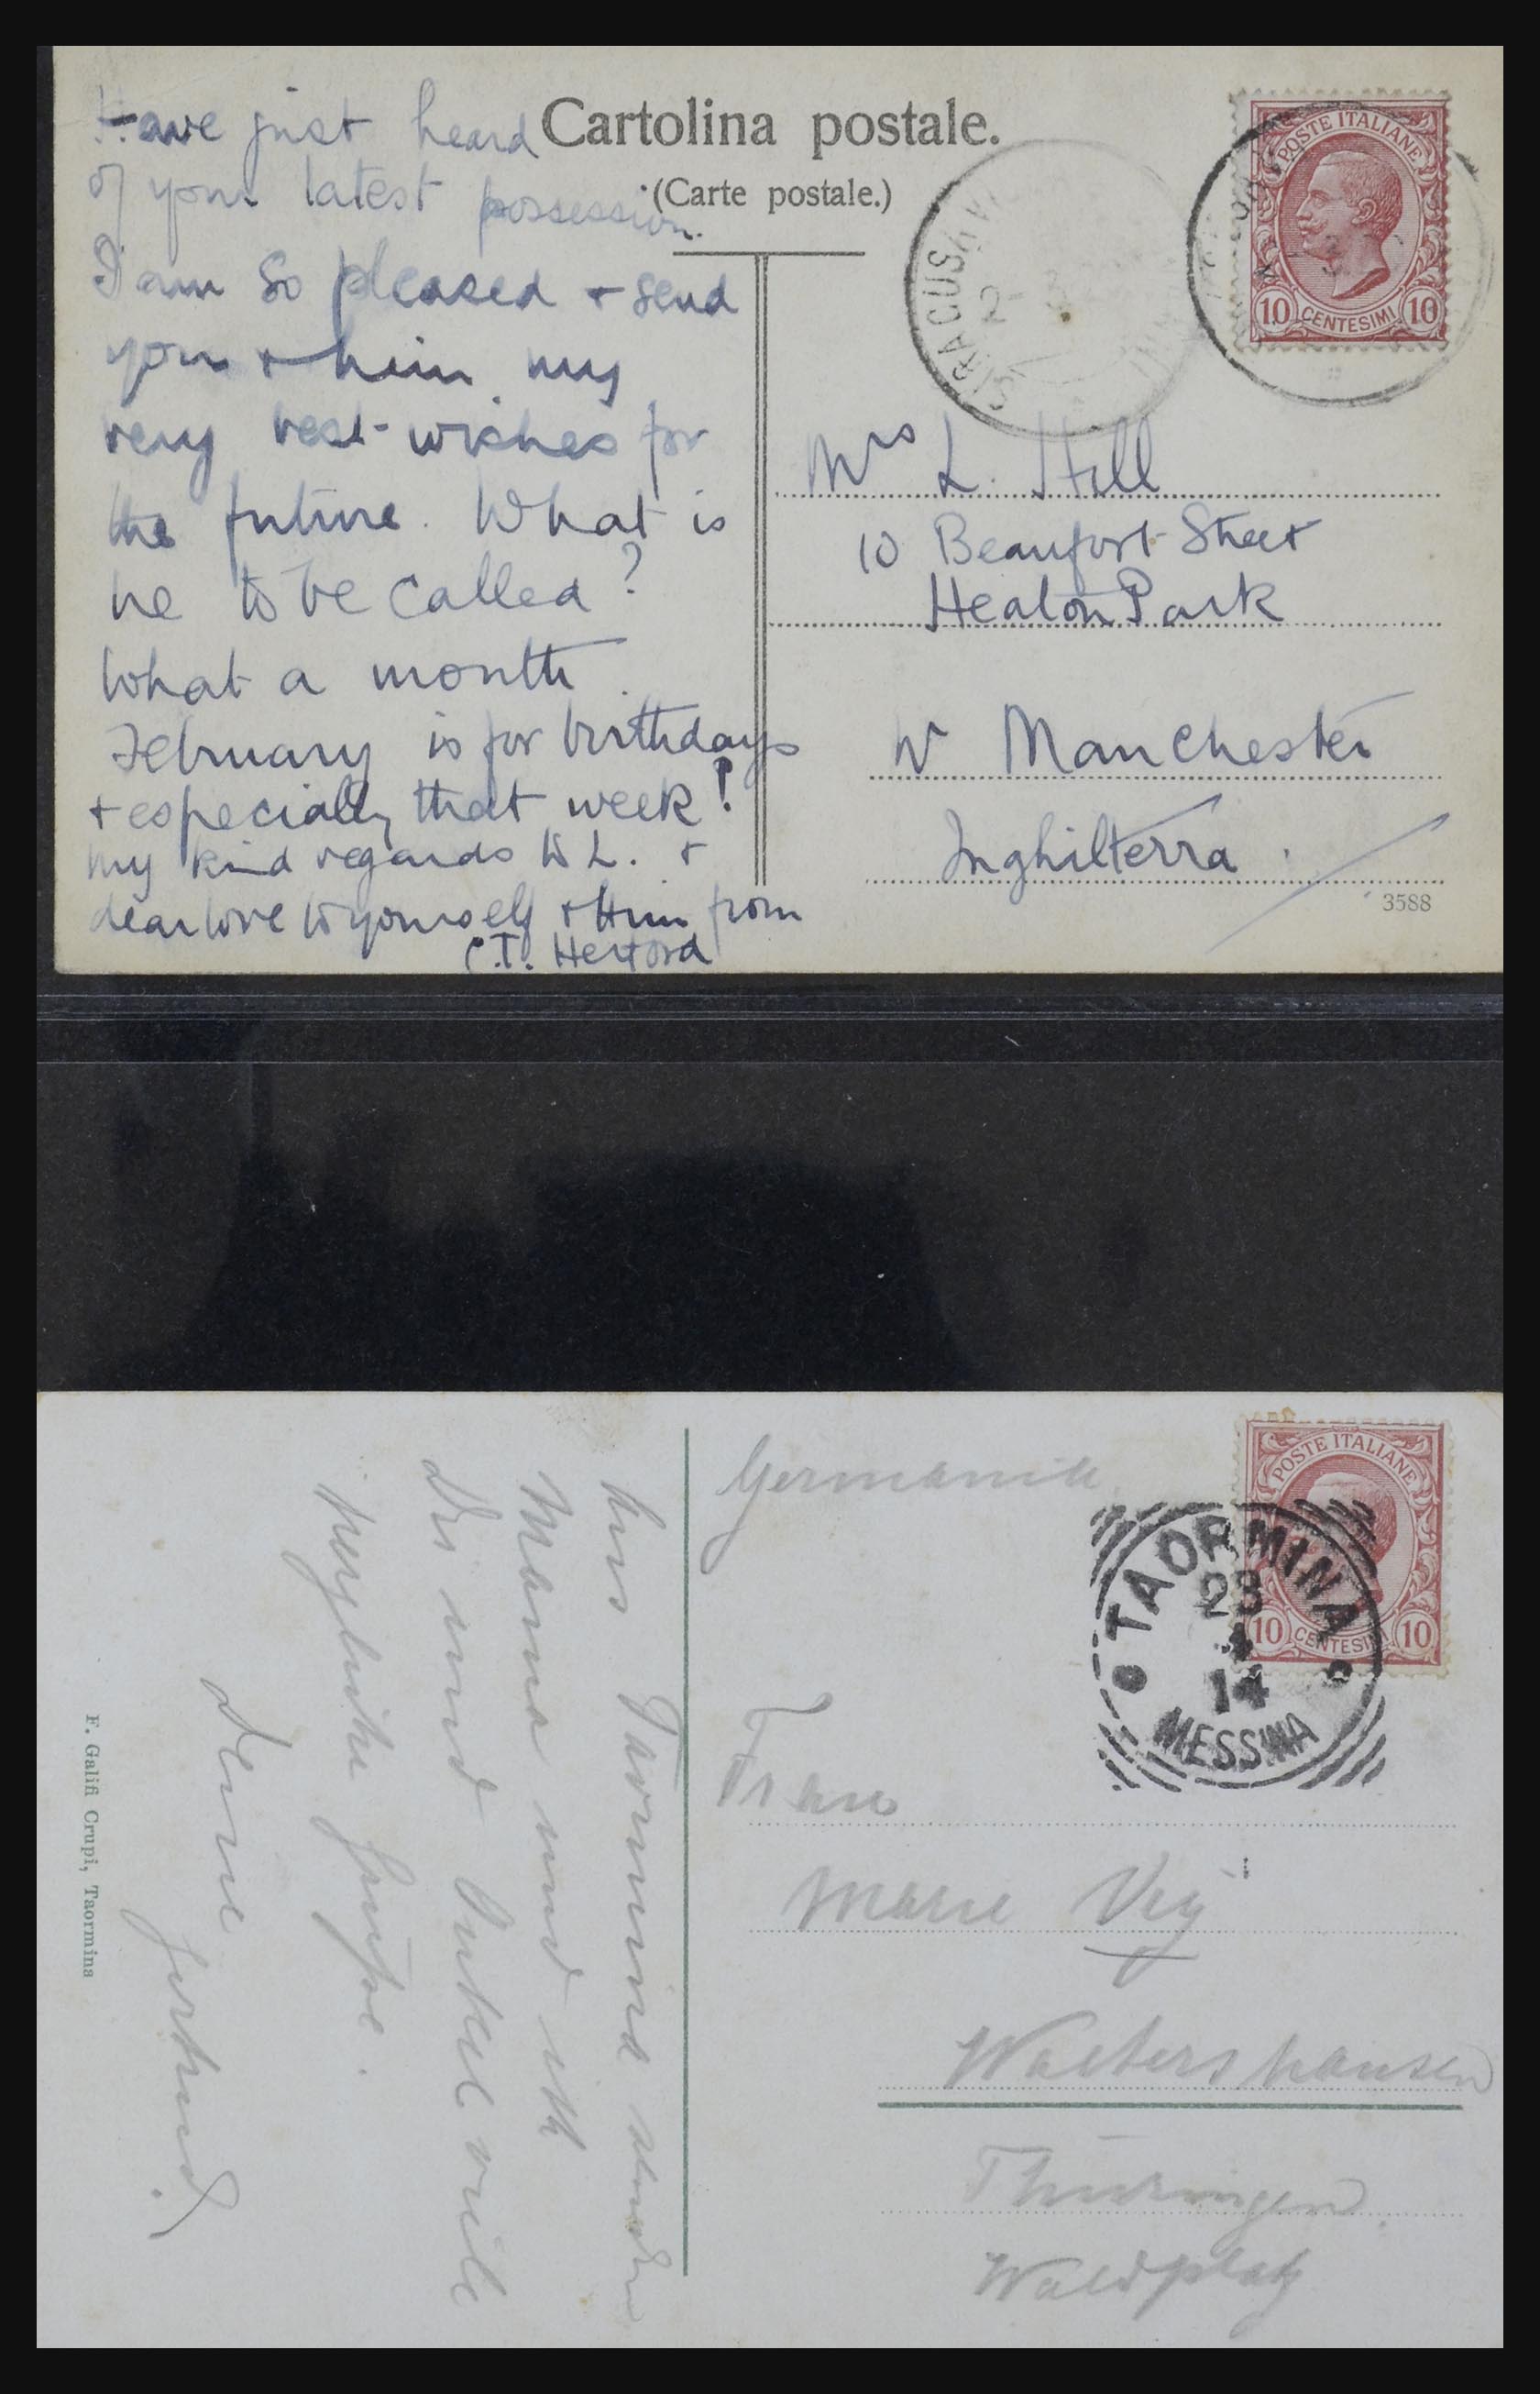 Have just heard
of your latest possession.
I am so pleased + send
you + him my
very best wishes for
the future. What is
he to be called?
What a month
February is for birthdays
+ especially that week!
my kind regards to L. +
dear love to yourself + Him from
C.T. Hertford
Cartolina postale.
(Carte postale.)
SIRACUSA
POSTE ITALIANE
10 CENTESIMI 10
Mrs L. Hill
10 Beaufort Street
Heaton Park
Nr Manchester
Inghilterra
3588
Germania
POSTE ITALIANE
10 CENTESIMI 10
TAORMINA
23
4
14
MESSINA
Frau
Marie
Waltershausen
Thüringen
Waldplatz
Aus Taormina senden
Mama und ich
Dir und Onkel viele
herzliche Grüße.
Deine Gertrud
F. Galifi Crupi, Taormina